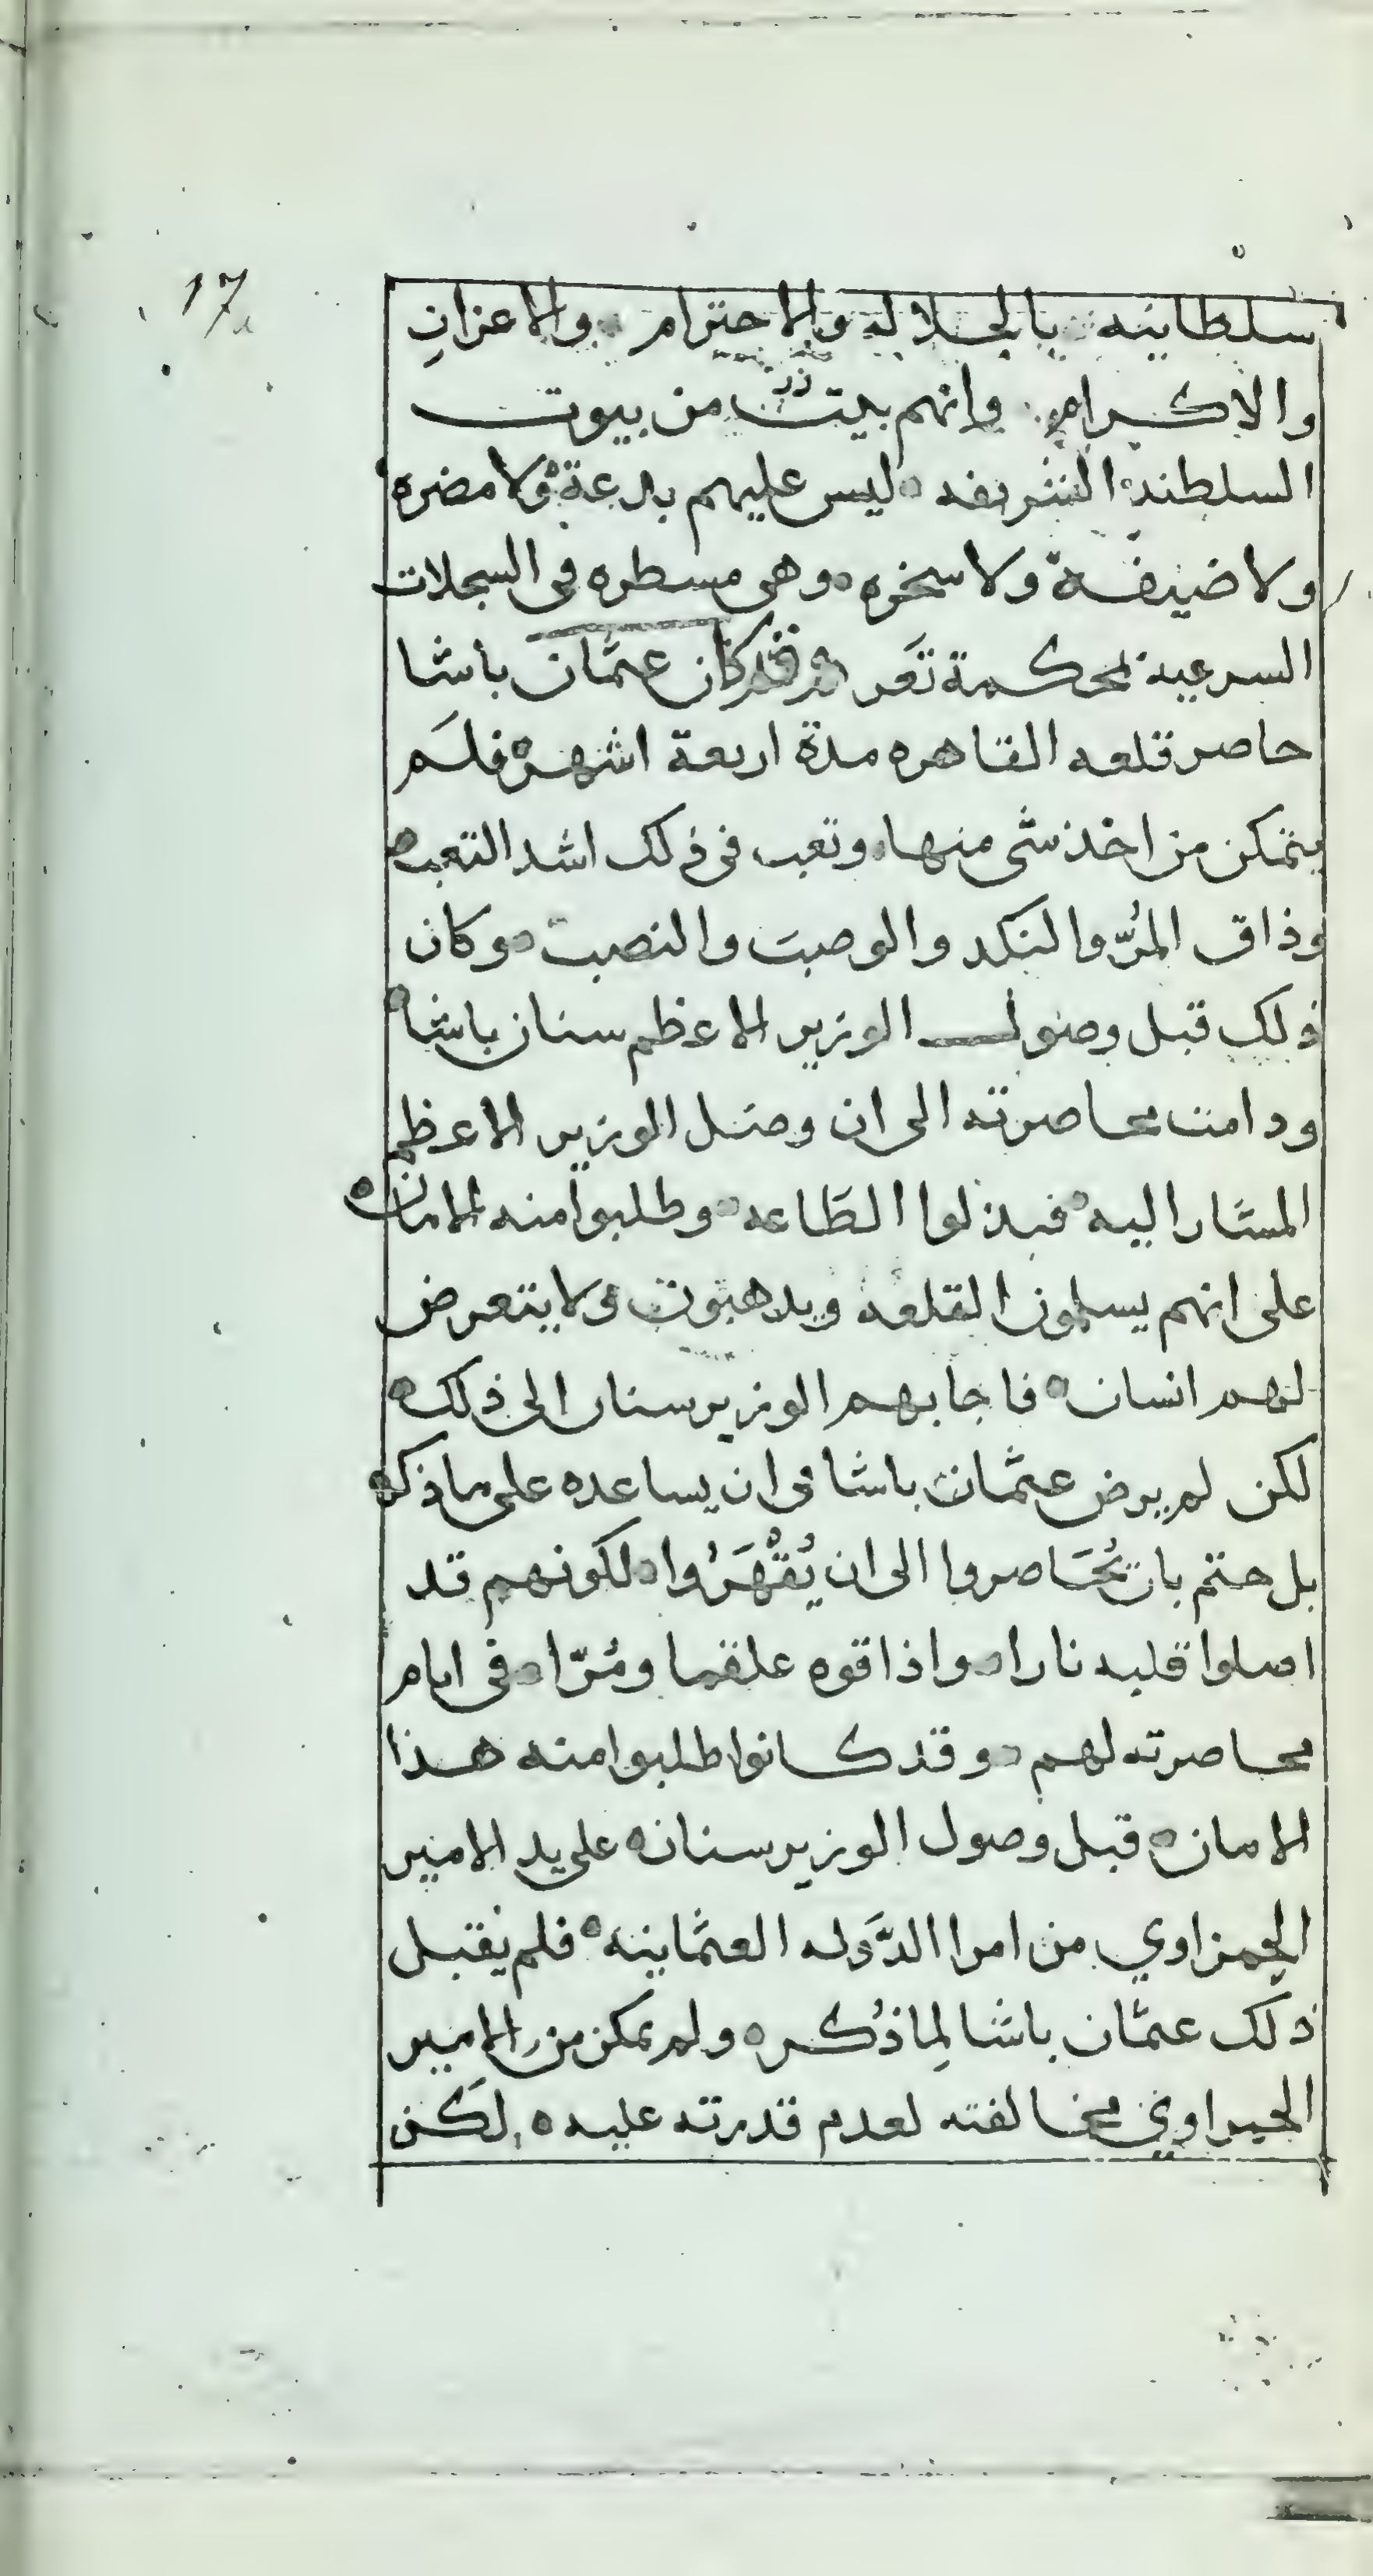 17
سلطانيه بالجلاله والاحترام والاعزاز
والاكرام وانهم بيت من بيوت
السلطنه الشريفه ليس عليهم بدعة ولا مضره
ولا ضيفة ولا سخره وهى مسطره فى السجلات
السرعيه بمحكمة تعز وقد كان عثمان باشا
حاصر قلعه القاهره مدة اربعة اشهر فلم
يتمكن من اخذ شى منها وتعب فى ذلك اشد التعب
وذاق المرّ والنكد والوصب والنصب وكان
ذلك قبل وصول الوزير الاعظم سنان باشا
ودامت محاصرته الى ان وصل الوزير الاعظم
المشار اليه فبذلوا الطاعه وطلبوا منه الامان
على انهم يسلمون القلعه ويدهبون ولا يتعرض
لهم انسان فاجابهم الوزير سنان الى ذلك
لكن لم يرض عثمان باشا فى ان يساعده على ماذكر
بل حتم بان يُحَاصروا الى ان يُقْهَرُوا لكونهم قد
اصلوا قلبه نارا واذاقوه علقما ومُرّا فى ايام
محاصرته لهم وقد كانوا طلبوا منه هذا
الامان قبل وصول الوزير سنان على يد الامير
الحمزاوي من امرا الدَّوله العثمانيه فلم يقبل
ذلك عثمان باشا لِما ذُكر ولم يمكن من الامير
الحمزاوي مخالفته لعدم قدرته عليه لكن